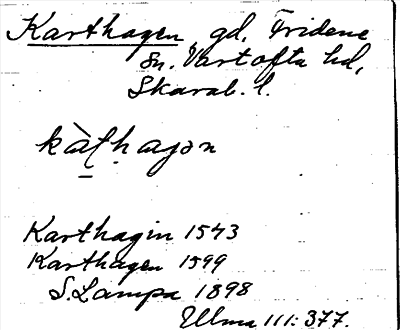 Karthagen gd, Fridene
sn. Vartofta hd,
Skarab. l.
kàṭhagən
Karthagin 1543
Karthagen 1599
S. Lampa 1898
Ullma III: 377.